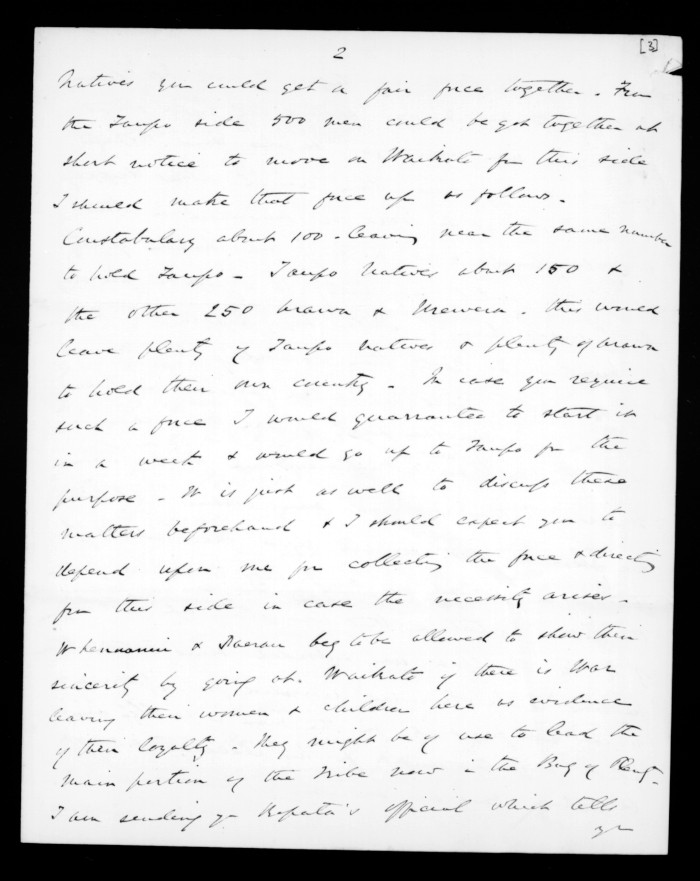 [3]
2
Natives you could get a fair force together. From
the Taupo side 500 men could be got together at
short notice to move on Waikato from this side
I should make that force up as follows.
Constabulary about 100 - leaving near the same number
to hold Taupo - Taupo Natives about 150 &
the other 250 Arawa & Urewera. this would
leave plenty of Taupo Natives & plenty of Arawa
to hold their own country - In case you require
such a force I would guarrantee to start it
in a week & would go up to Taupo for the
purpose - It is just as well to discuss these
matters beforehand & I should expect you to
depend upon me for collecting the force & directing
from this side in case the necessity arises -
& beg to be allowed to show their
sincerity by going at Waikato if there is War
leaving their women & children here as evidence
of their loyalty - They might be of use to lead the
main portion of the Tribe now in the Bay of Plenty -
I am sending yr Ropata's official which tells